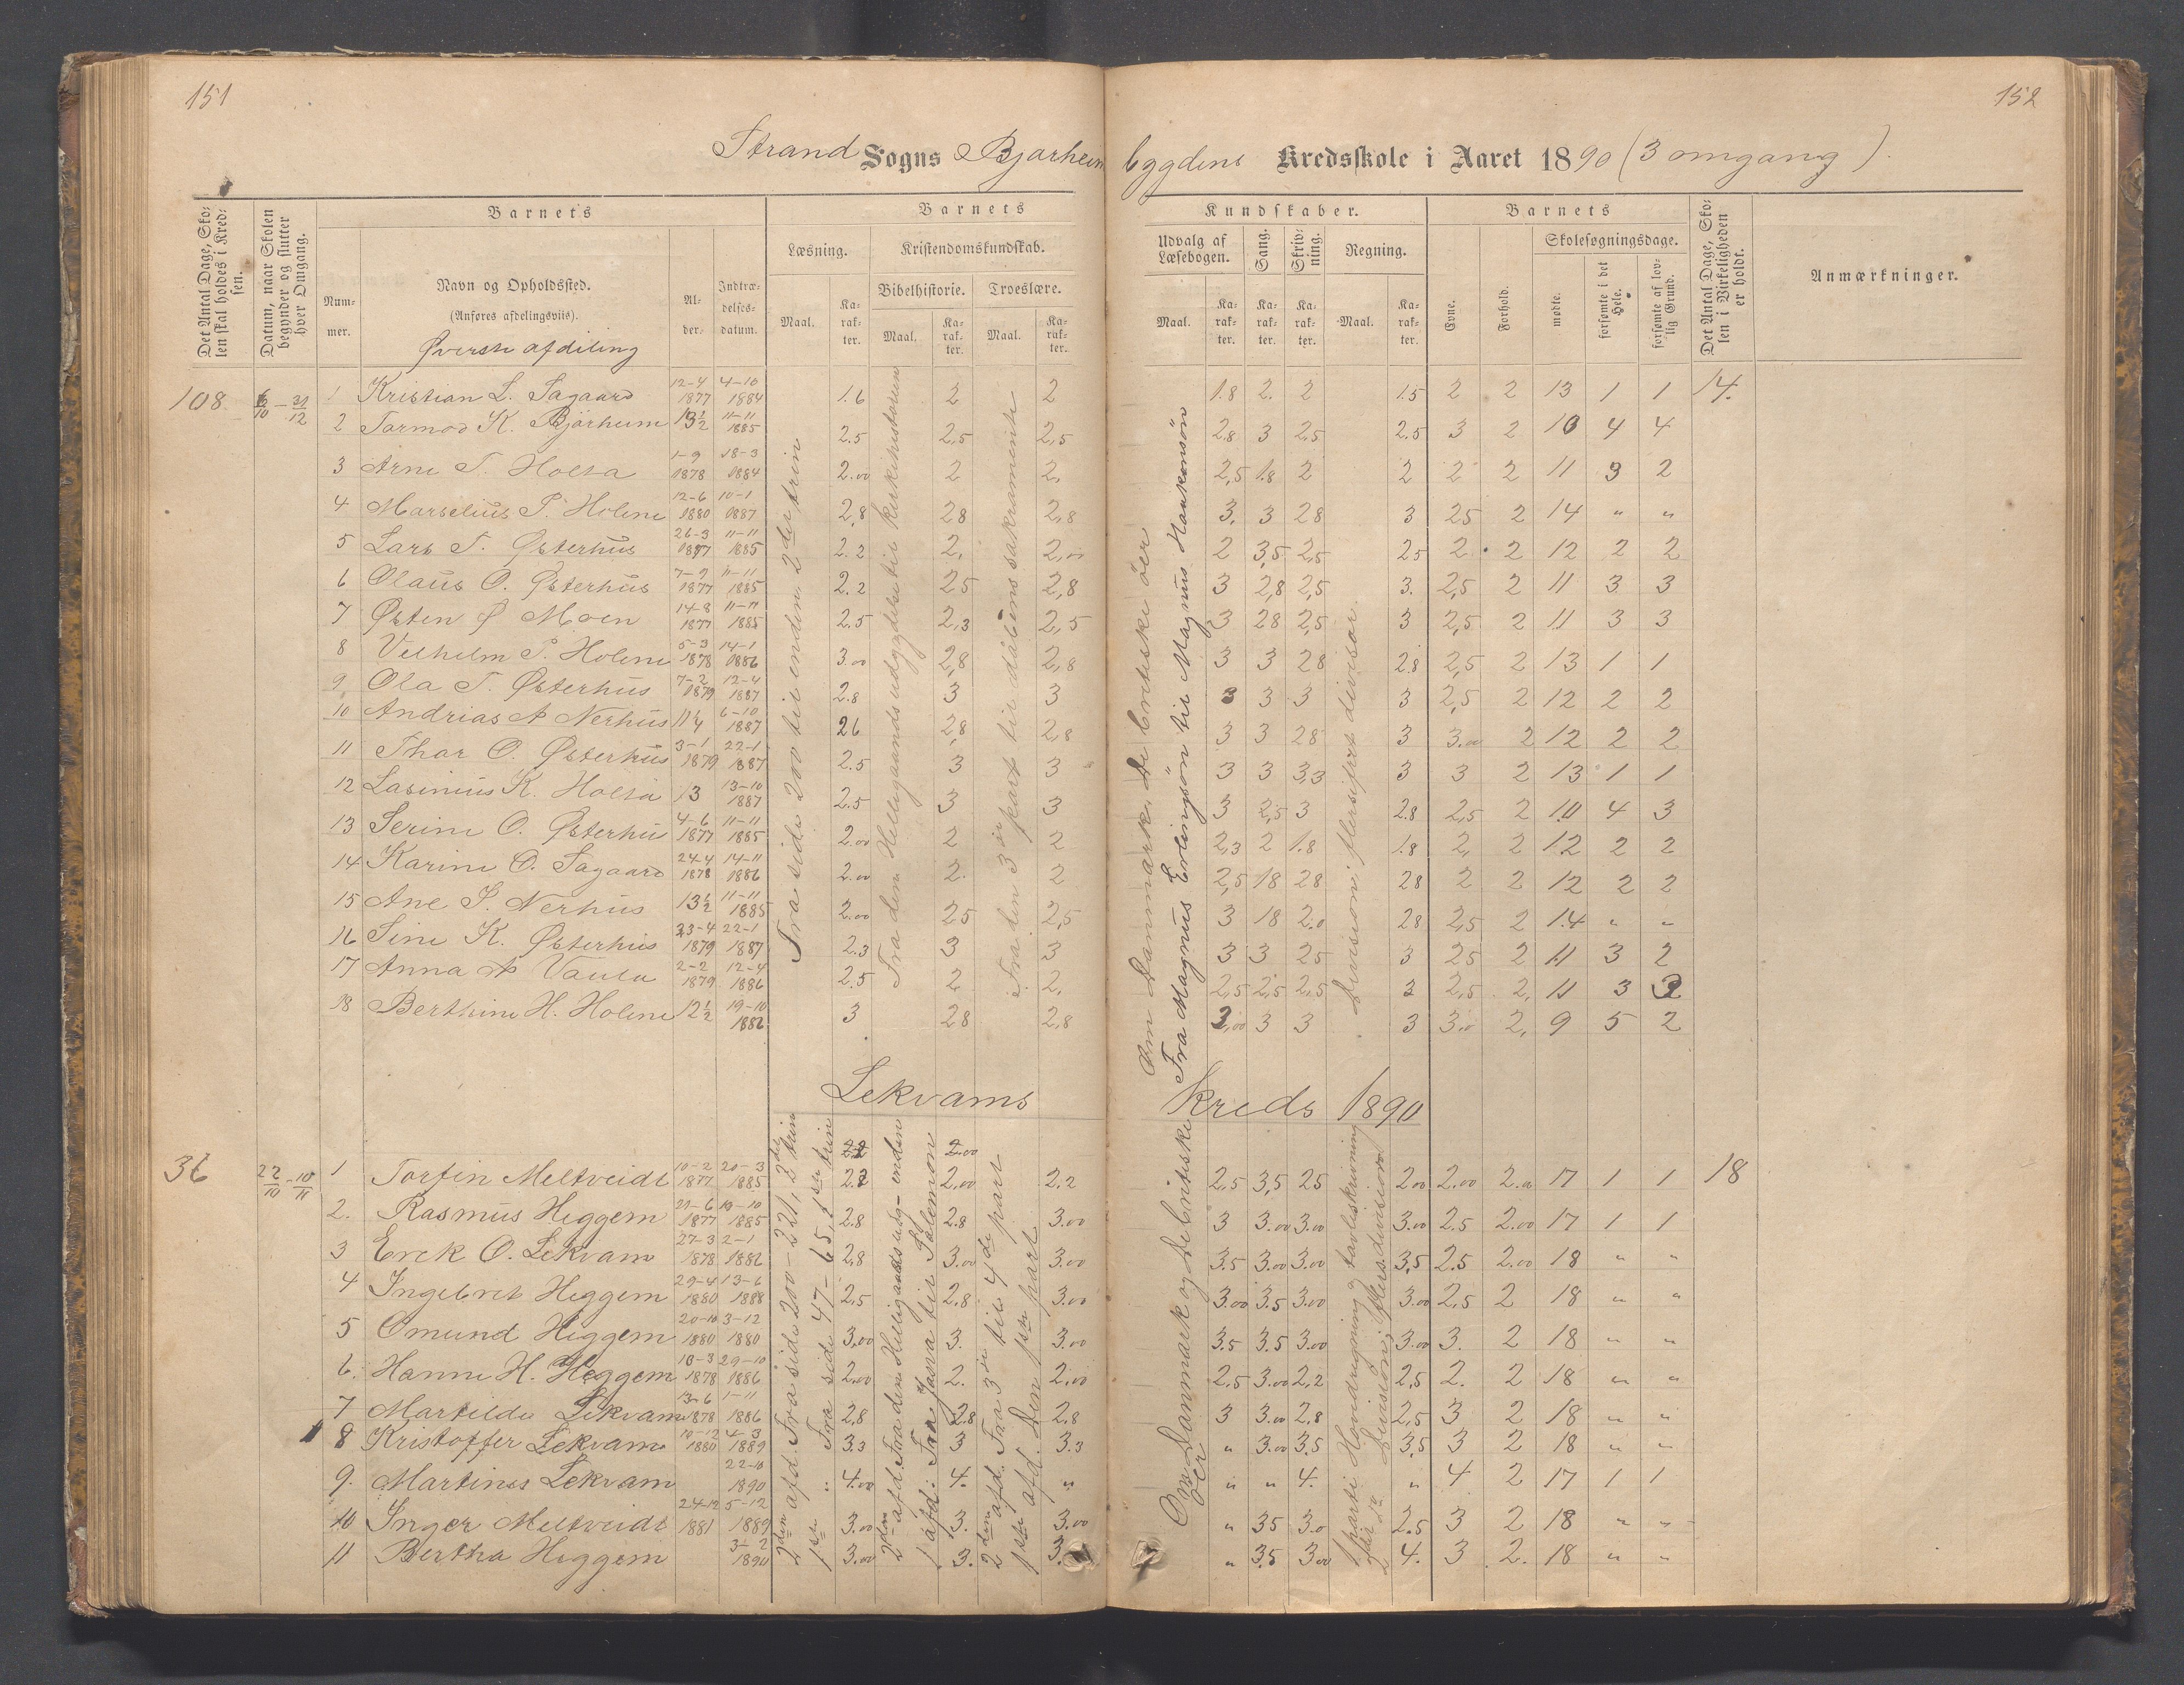 151
152
Strand Sogns Bjørheimbygdens Kredsskole i Aaret 1890 (3 omgang).
Det Antal Dage, Skolen skal holdes i Kredsen.
Datum, naar Skolen begynder og slutter hver Omgang.
Barnets
Nummer.
Navn og Opholdssted.
(Anføres afdelingsviis).
Øverste afdeling
Alder.
Indtrædelsesdatum.
Barnets
Læsning.
Maal.
Karakter.
Kristendomskundskab.
Bibelhistorie.
Maal.
Karakter.
Troeslære.
Maal.
Karakter.
Kundskaber.
Udvalg af Læsebogen.
Maal.
Karakter.
Sang.
Karakter.
Skrivning.
Karakter.
Regning.
Maal.
Karakter.
Barnets
Evne.
Forhold.
Skolesøgningsdage.
mødte.
forsømte i det Hele.
forsømte af lovlig Grund.
Det Antal Dage, Skolen i Virkeligheden er holdt.
Anmærkninger.
108
Fra side 200 til enden 2det trin
Fra den Helligaands udgydelse til kirkehistorien
Fra den 3die part til dåbens sakramente
Om Danmark, de britiske öer
Fra Magnus Erlingsön til Magnus Haakonsön
Division i flersifret divisor.
1 Kristian L. Tagaard 12-4 1877 4-10 1884 1.6 2 2 1.8 2. 2 1.5 2 2 13 1 1 14.
2 Tormod K. Bjørheim 13½ 11-11 1885 2.5 2,5 2,5 2.8 3 2,5 2.5 3 2 10 4 4
3 Arne T. Holta 1-9 1878 18-3 1884 2.00 2 2, 2,5 1.8 2 2 2 2 11 3 2
4 Marselius P. Holene 12-6 1880 10-1 1887 2,8 28 2,8 3, 3 28 3 25 2 14 " "
5 Lars T. Østerhus 26-3 1877 11-11 1885 2.2 2, 2,00 2 3,5 2,5 25 2 2 12 2 2
6 Olaus O. Østerhus 7-9 1877 11-11 1885 2.2 25 2,8 3 2,8 2,5 3. 2,5 2 11 3 3
7 Østen Ø Moen 14-8 1877 11-11 1885 2.5 2,3 2,5 3 28 2,5 3 2,5 2 11 3 3
8 Vilhelm P. Holene 5-3 1878 14-1 1886 3.00 2,8 2,8 3 3 28 2.8 2,5 2 13 1 1
9 Ola T. Østerhus 7-2 1879 12-4 1887 2.8 3 3 3 3 3 3 2,5 2 12 2 2
10 Andrias A Nerhus 11¼ 6-10 1887 26 2,8 2,8 3 3 28 3 3.00 2 12 2 2
11 Thor O. Østerhus 3-1 1879 22-1 1887 2.5 3 3 3 3 3,3 3 3 2 13 1 1
12 Lasinius K. Holta 13 13-10 1887 2.5 3 3 3 2,5 3 2.8 2,5 2 10 4 3
13 Serine O. Østerhus 4-6 1877 11-11 1885 2.00 2 2 2,3 2 1.8 1.8 2, 2 12 2 2
14 Karine O. Tagaard 24-4 1878 14-11 1886 2.00 2. 2 2,5 18 28 28 2 2 12 2 2
15 Ane S. Nerhus 13½ 11-11 1885 2.00 25 2,5 3 18 2.0 28 2,5 2 14 " "
16 Sine K. Østerhus 23-4 1879 22-1 1887 2.3 3 3 3 3 25 3 25 2 11 3 2
17 Anna A Vaula 2-2 1879 12-4 1886 2.5 2 2, 2,5 2,5 2,5 3 2,5 2, 11 3 2
18 Berthine H. Holene 12½ 19-10 1886 3 28 2,8 3,00 3 3 3 3.0 2, 9 5 2
Lekvams kreds 1890
36 22/10 - 10/11
2den afd. Fra side 200-221, 2det trin
1ste " Fra side 47-65, 1ste trin
2den afd. Fra den Helligaands udg - enden
1 afd: Fra Josva til Salemon
2den afd. Fra 3die til 4de part
1ste afd. Den 1ste part
Om Danmark og de britiske öer
1 parti Hovedregning og tavleskrivning
1 Torfin Meltveidt 10-2 1877 20-3 1885 2.2 2,00 2.2 2,5 3,5 25 2.00 2.00 2.00 17 1 1 18
2. Rasmus Heggem 29-6 1877 19-10 1885 2.8 2.8 3.00 3 3.00 3.00 3.00 2.5 2.00 17 1 1
3 Erek O. Lekvam 27-3 1878 2-1 1886 2,8 3.00 3.00 3.5 3.00 3.00 3,5 2.5 2.00 18 " "
4 Ingebret Heggem 29-4 1880 13-6 1888 2,5 2,8 3.00 3.00 3.5 3.00 3.00 2,5 2 18 " "
5 Omund Heggem 20-10 1880 3-12 1880 3,00 3. 3.00 3.5 3.5 3.00 3.00 3. 2 18 " "
6. Hanne H. Heggem 18-3 1878 29-10 1886 2,00 2. 2.00 2.5 3.00 2,2 2,5 2. 2 18 " "
7 Martilde Lekvam 13-6 1878 1-11 1886 2,8 2.8 2.8 3 3.00 2.8 2,5 3 2 18 " "
8 Kristoffer Lekvam 10-12 1880 4-3 1889 3.3 3 3.3 " 3.00 3.5 3,5 3 2 18 " "
9. Martines Lekvam 22-10 1890 4.00 4. " " " 4. " 4 2 17 1 1
10 Inger Meltveidt 24-12 1881 5-12 1889 3.00 3. 3.00 " 35 3.0 2.5 3 2 18 " "
11 Bertha Heggem 3-2 1890 3.00 3. 3. " 3.5 3.00 4. 3 2. 18 " "